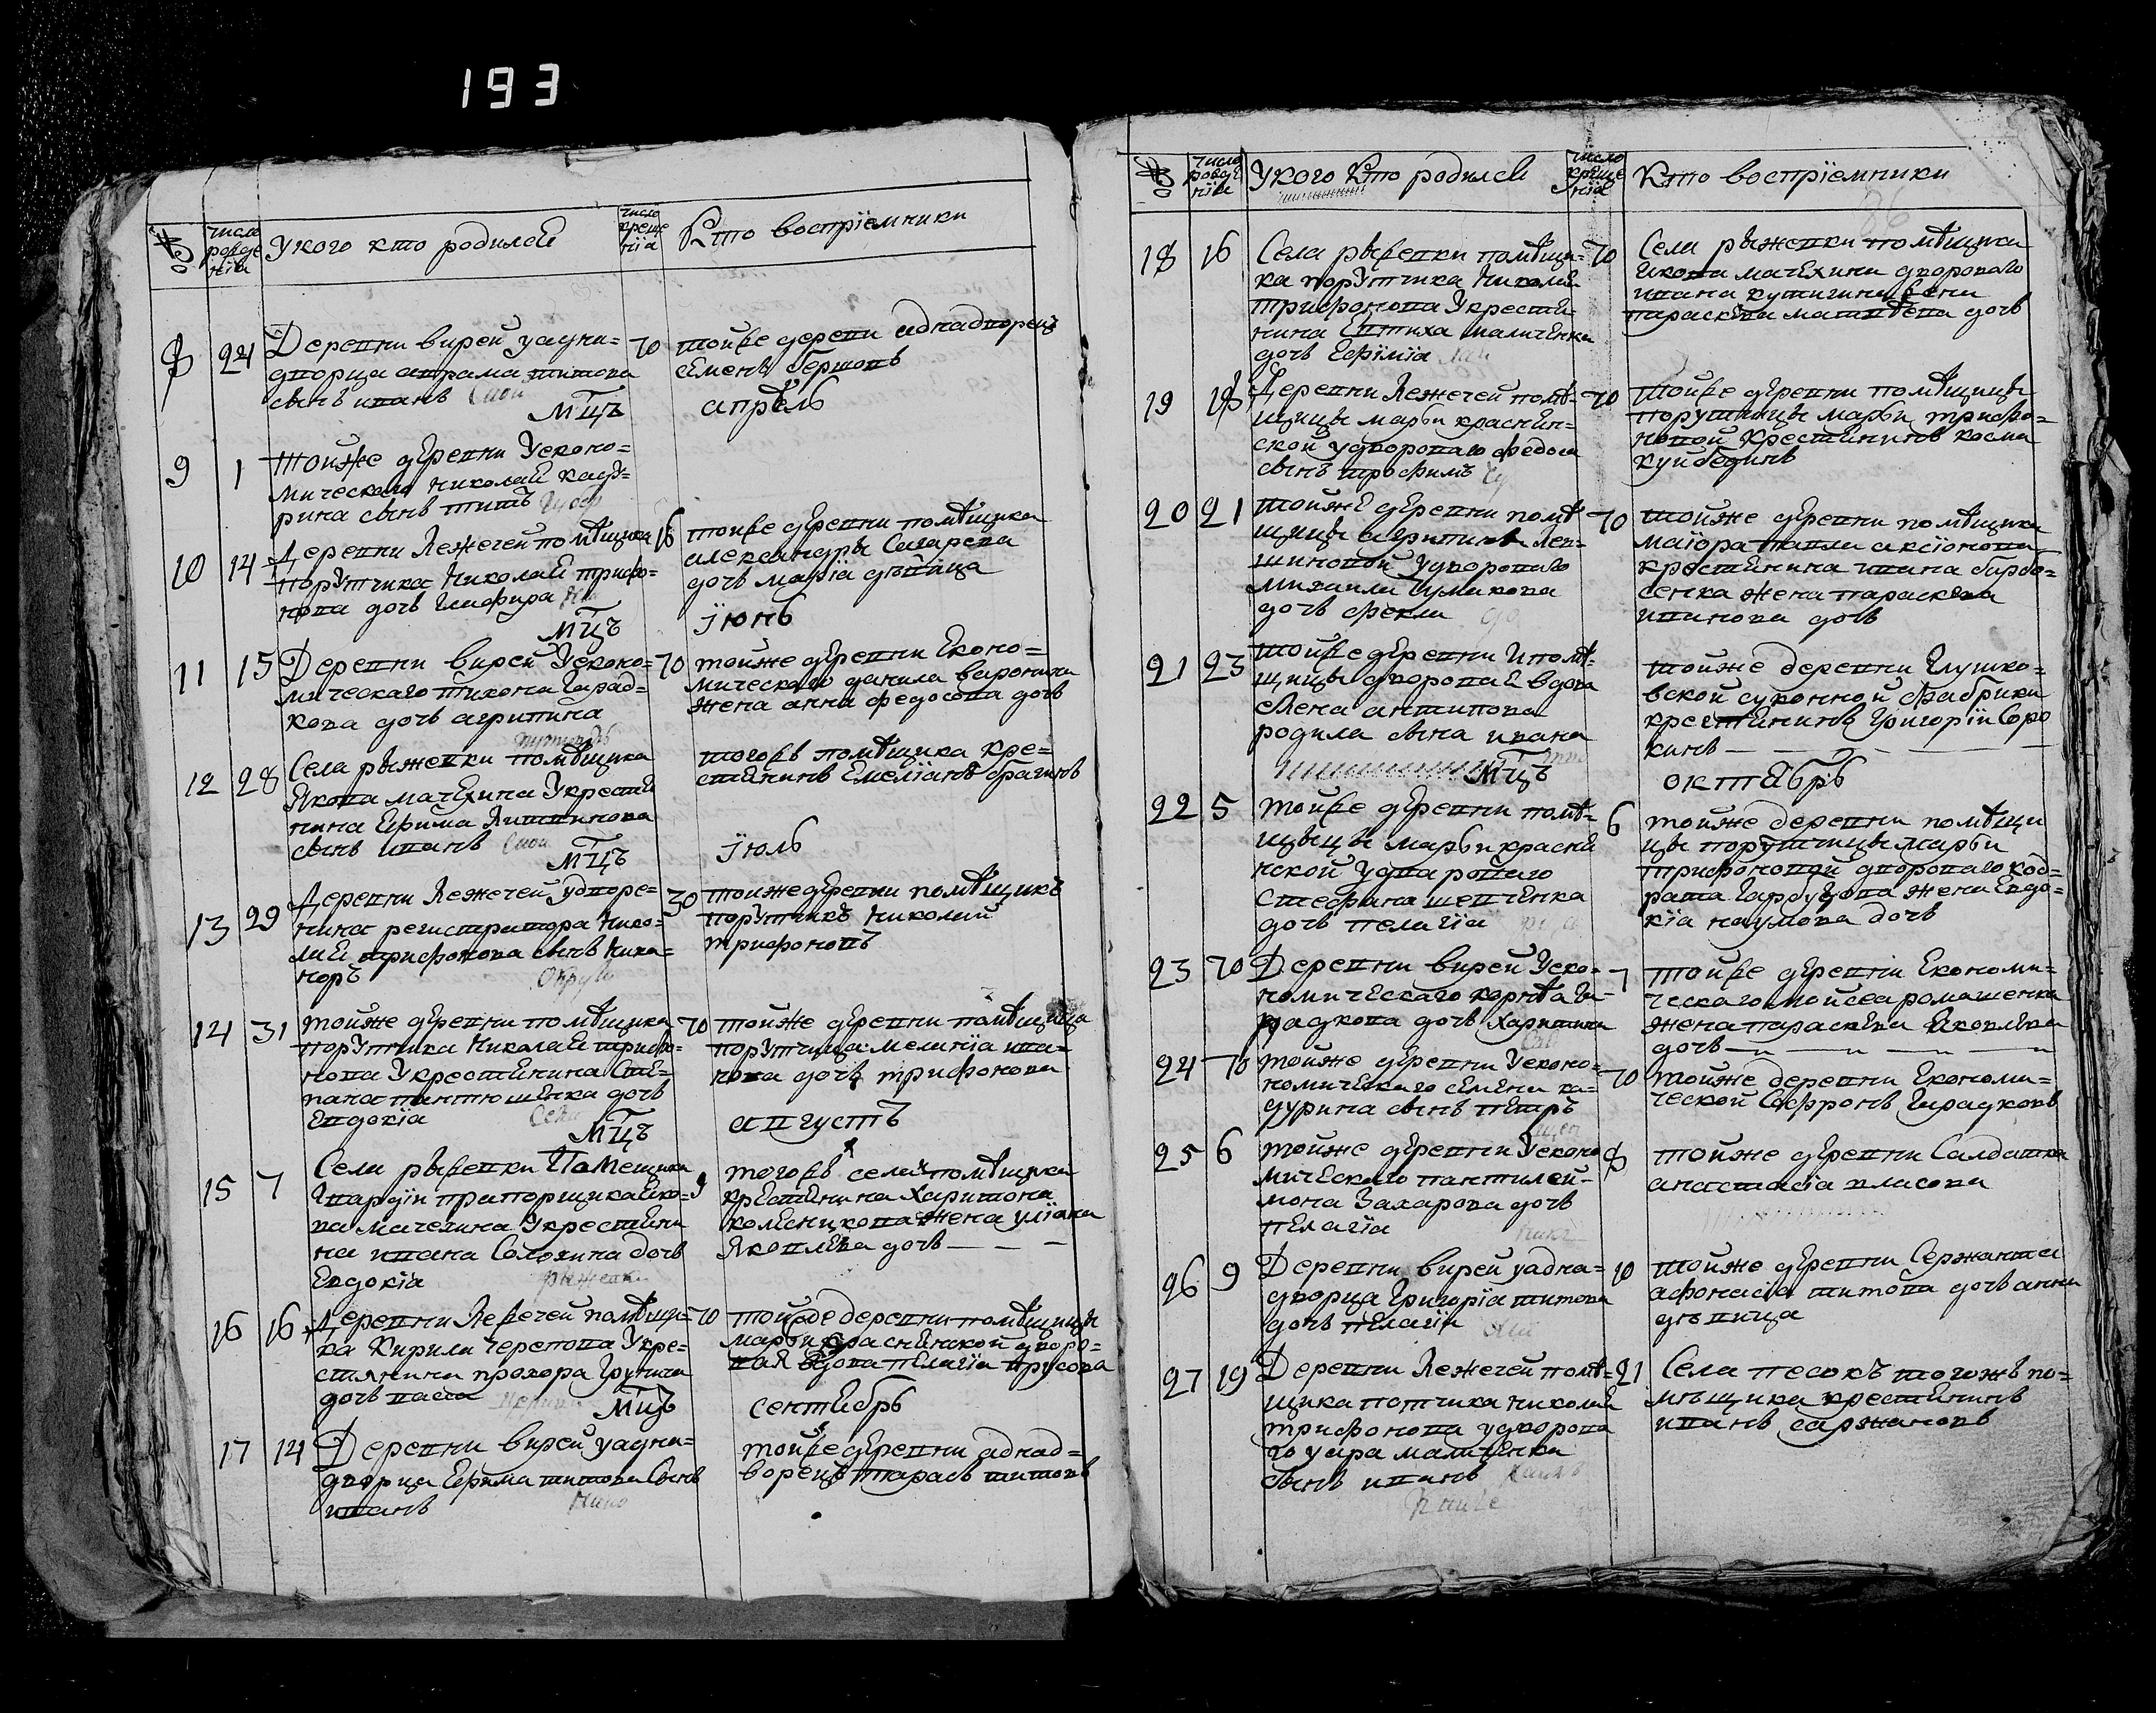 193
№
число рожде нїѧ
У кого кто родилсѧ
число креще нїа
Кто воспрїемники
8
24
Деревни вирей у адна=
дворца аврама титова
сынъ иванъ
то
тойже деревни аднадворецъ
семенъ
Мцъ
апрѣль
9
1
тойже деревни у еконо=
мическаго николаѧ кад=
рина сынъ титъ
10
14
Деревни лежечей помѣщика
порутчика николаѧ трифо=
нова дочь глафира
16
тойже деревни помѣщика
александры Сагарева
дочь марїа дѣвица
Мцъ
їюнь
11
15
Деревни вирей у еконо=
мическаго тихона гарад=
кова дочь агрипина
то
тойже деревни еконо=
мическаго данила варонина
жена анна федосова дочь
12
28
Села рыжевки помѣщика
Якова мачехина у крестѧ
нина ефима
сынъ иванъ
тогожъ помѣщика кре=
стѧнинъ емелїанъ брагинъ
Мцъ
їюль
13
29
Деревни лежечей у дворе=
нина регистратора нико=
лаѧ трифонова сынъ ника=
норъ
30
тойже деревни помѣщикъ
порутчикъ николай
трифоновъ
14
31
тойже деревни помѣщика
порутчика николаѧ трифо=
нова у крестѧнина сте=
пана пантюшенка дочь
евдокїа
то
тойже деревни помѣщица
порутчица меланїа ива=
нова дочь трифонова
Мцъ
августъ
15
7
Села рыжевки Памещика
гвардїи прапорщика Ѧко=
ва мачехина у крестѧни
на ивана Солохина дочь
евдокїа
9
тогожъ села помѣщика
крестѧнина харитона
колесникова жена улїана
Яковлева дочь — — —
16
16
Деревни лежечей помѣщи=
ка Кирила черепова у кре=
стѧнина прохора грунина
дочь васса
то
тойже деревни помѣщицы
марьи краснѧнской дворо=
вая вдова пелагїа трусова
Мцъ
сентѧбрь
17
14
Деревни вирей у адна=
дворца ефима титова сынъ
иванъ
тойже деревни аднад=
ворецъ тарасъ титовъ
№
число рожде нїѧ
У кого Кто родилсѧ
число креще нїа
Кто воспрїемники
18
16
Села рыжевки помѣщи=
ка порутчика николаѧ
трифонова у крестѧ
нина евтиха маличенка
дочь ефимїа
то
Села рыжевки помѣщика
Ѧкова мачехина двороваго
ивана кутигина жена
параскева матвѣева дочь
19
18
Деревни лежечей помѣ=
щицы марьи краснѧн=
ской у двороваго федота
сынъ трофимъ
то
тойже деревни помѣщицы
порутчицы марьи трифо=
новой крестѧнинъ косма
20
21
тойже деревни помѣ
щицы агрипины лев=
шиновой у двороваго
михаила чумакова
дочь фекла
то
тойже деревни помѣщика
маїора павла аксїонова
крестѧнина ивана барбо=
сенка жена параскева
иванова дочь
21
23
тойже деревни у помѣ=
щицы дворовая вдова
елена антипова
родила сына ивана
тойже деревни глушко=
вской суконной фабрики
крестѧнинъ григорїи Соро
кинъ
Мцъ
октѧбрь
22
5
тойже деревни помѣ=
щицы марьи краснѧ
нской у двароваго
стефана шевченка
дочь пелагїа
6
тойже деревни помѣщи
цы порутчицы марьи
трифоновой двороваго код=
рата гарбузова жена евдо=
кїа наумова дочь
23
то
Деревни вирей у еко=
номическаго корнѣа га=
радкова дочь харитина
7
тойже деревнїи економи=
ческаго мойсеа ромашенка
жена параскева Ѧковлева
дочь
24
то
тойже деревни у еконо=
номическаго семена ка=
дурина сынъ петръ
то
тойже деревни економи=
ческой Софронъ гарадковъ
25
6
тойже деревни у еконо
мическаго пантилей=
мона захарова дочь
пелагїа
8
тойже деревни Салдатка
анастасїа власова
26
9
Деревни вирей у адна=
дворца григорїа титова
дочь пелагїа
10
тойже деревни Сержанта
афонасїа титова дочь анна
дѣвица
27
19
Деревни лежечей помѣ=
щика потчика николаѧ
трифонова у дворова
го уара маличенка
сынъ иванъ
21
Села песокъ тогожъ по=
мѣщика крестѧнинъ
иванъ саржановъ